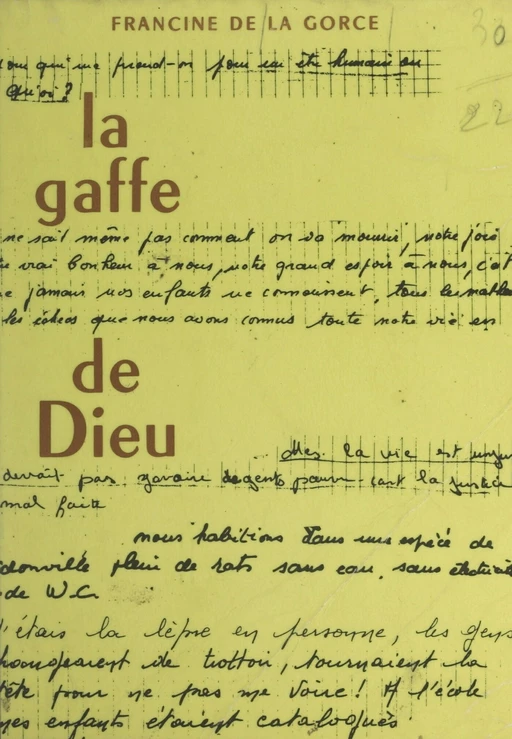 FRANCINE DE LA GORCE
30
22
pour qui me prend-on pour un être humain ou
Quoi?
la
gaffe
ne sait même pas comment on va mourir, notre joie
vrai bonheur à nous, notre grand espoir à nous, c'est
jamais nos enfants ne connaissent, tous les
les échecs que nous avons connus toute notre vie en
de
Dieu
Mes. la vie est
devrait pas y avoir de gents pauvre cart la justice
mal faite
nous habitions dans une espèce de
bidonville plein de rats sans eau, sans
de W.C.
J'étais la lèpre en personne, les gens
changeaient de trottoir, tournaient la
tête pour ne pas me Voire! A l'école
mes enfants étaient catalogués